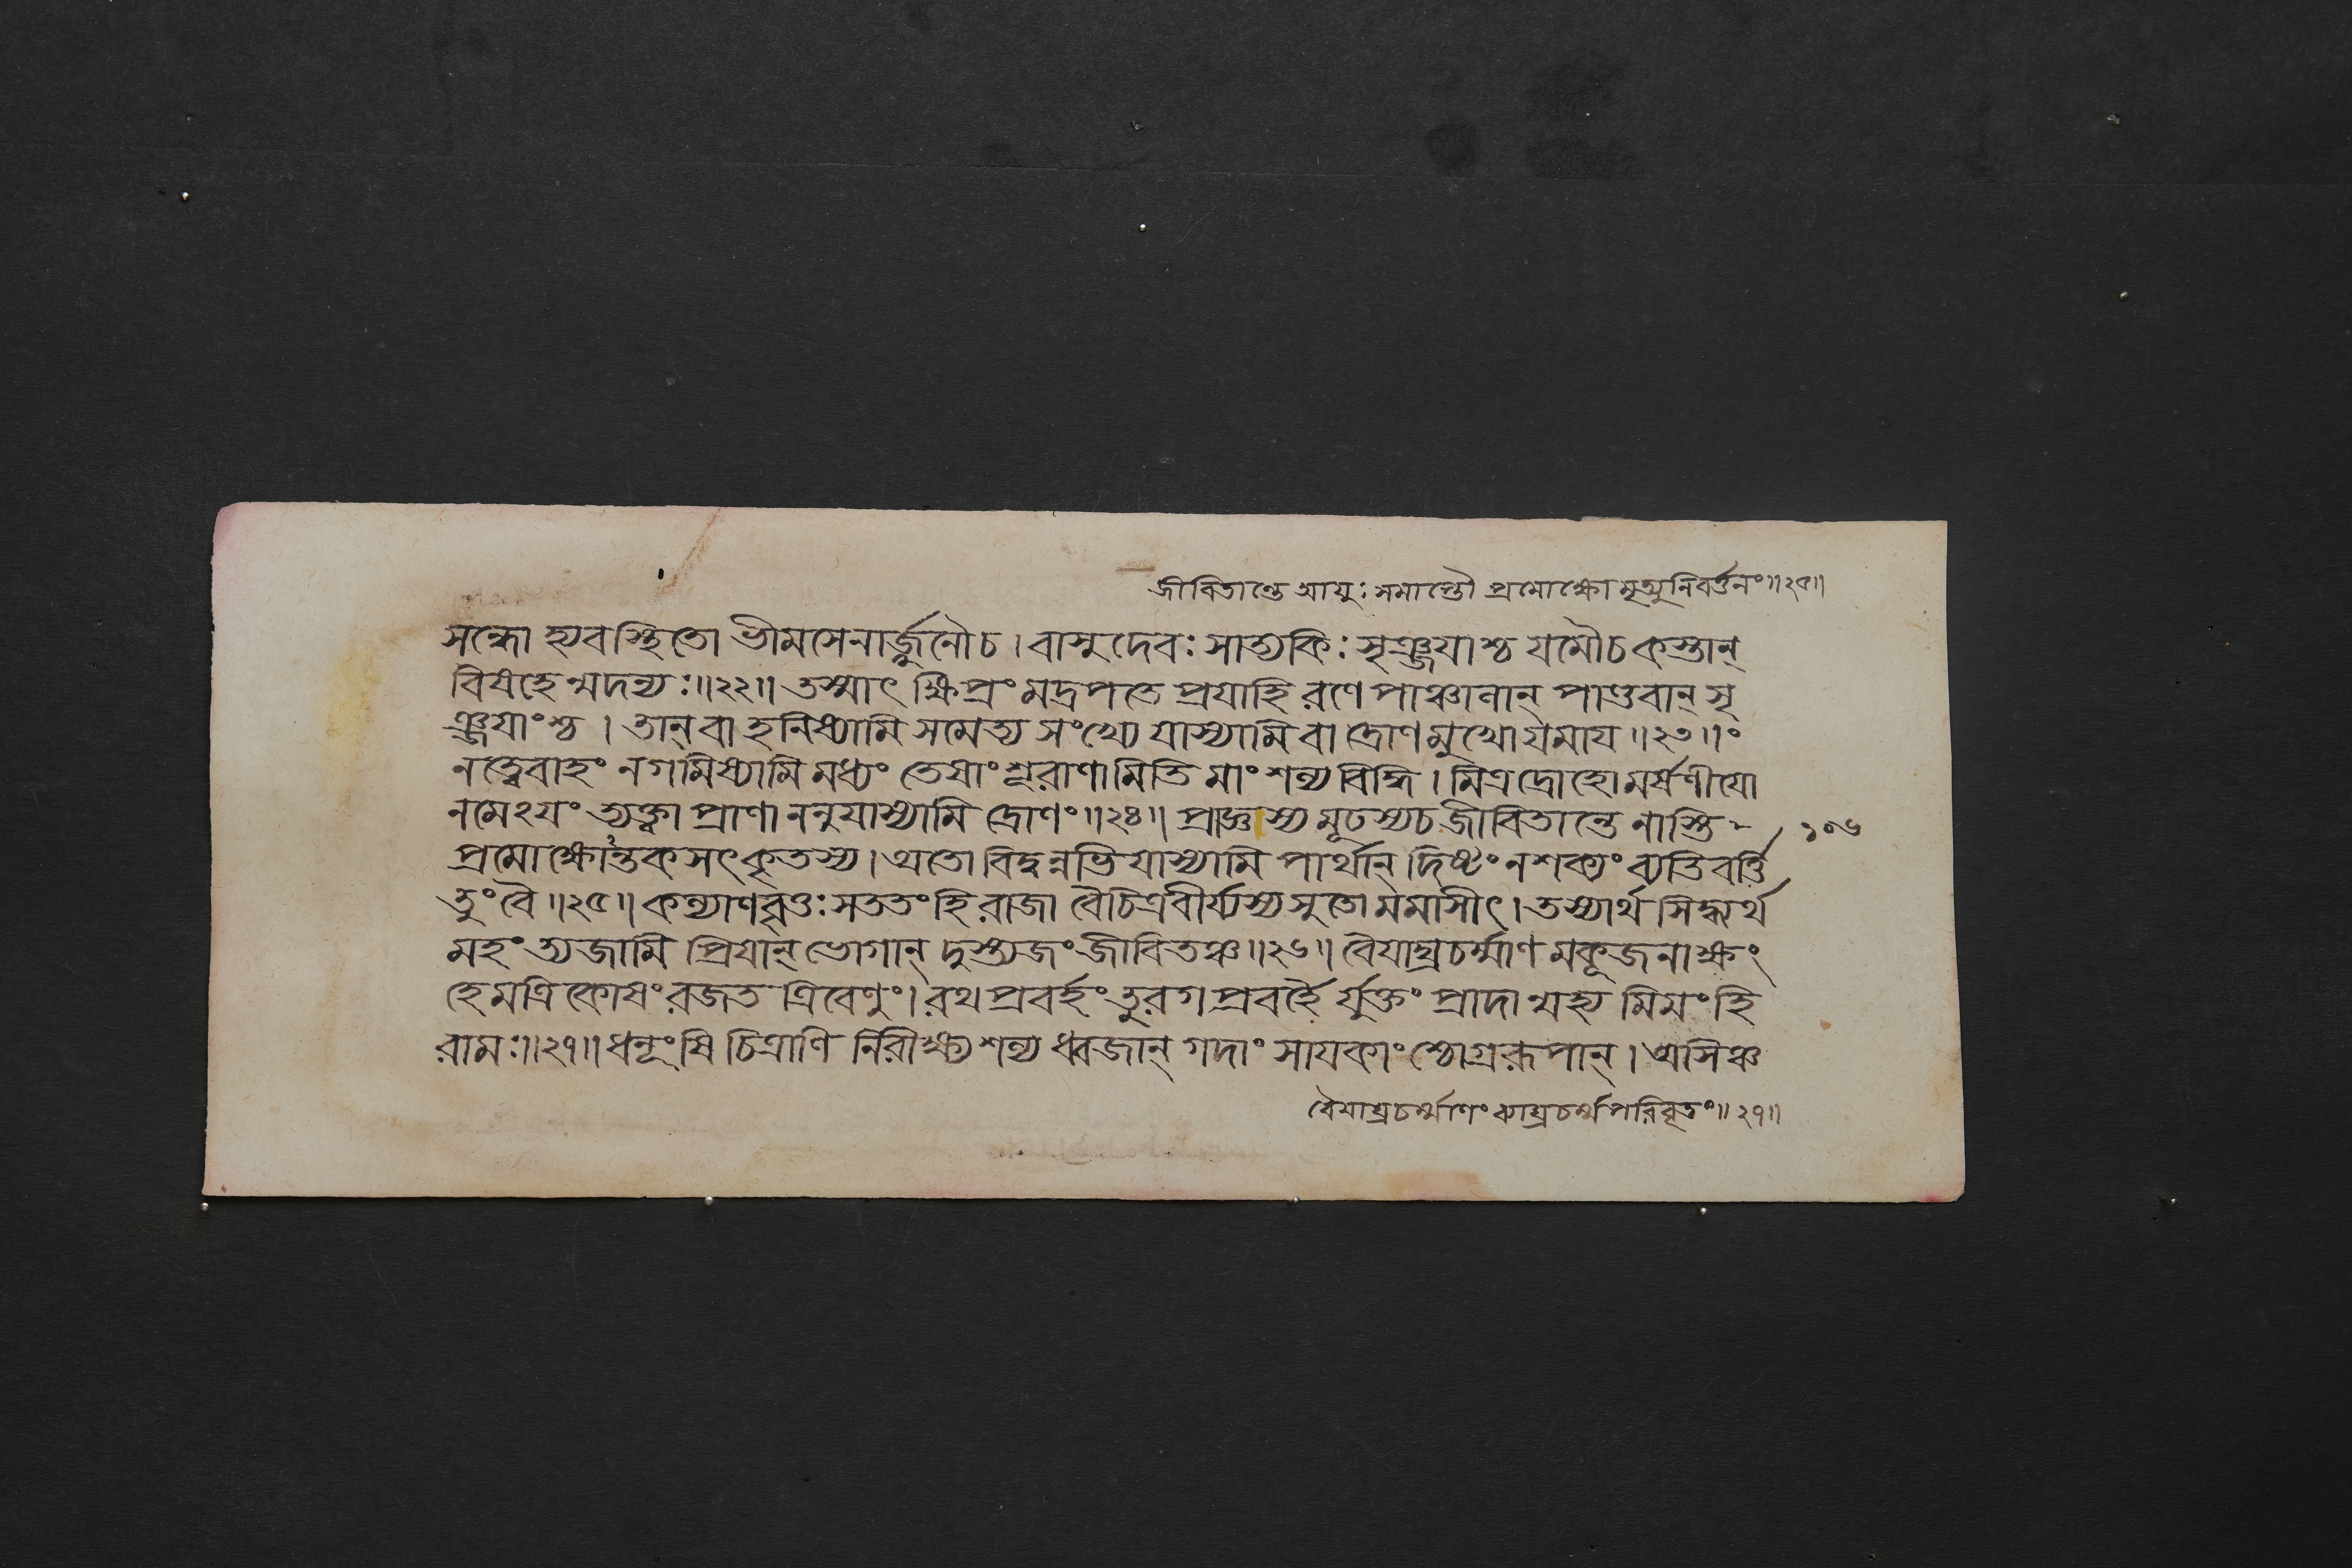 জীবিতান্তে আয়ুঃ সমাপ্তৌ প্রমোক্ষো মৃত্যুনিবর্ত্তনং॥২৫॥
সন্ধো হ্যবস্থিতো ভীমসেনার্জ্জুনৌচ। বাসুদেবঃ সাত্যকিঃ সৃঞ্জয়াশ্চ যমৌচ কস্তান্
বিষহেন্মদন্যঃ॥২২॥ তস্মাৎ ক্ষিপ্রং মদ্রপতে প্রযাহি রণে পাঞ্চালান্ পাণ্ডবান্ সৃ
ঞ্জয়াংশ্চ। তান্ বা হনিষ্যামি সমেত্য সংখ্যে যাস্যামি বা দ্রোণমুখো যমায॥২৩॥ং
নত্বেবাহং নগমিষ্যামি মধ্যং তেষাং শূরাণামিতি মাং শল্য বিদ্ধি। মিত্রদ্রোহো মর্ষণীযো
নমেঽযং ত্যক্ত্বা প্রাণাননুযাস্যামি দ্রোণং॥২৪॥ প্রাজ্ঞস্য মূঢস্যচ জীবিতান্তে নাস্তি ১০৬
প্রমোক্ষোন্তক সৎকৃতস্য। অতো বিদ্বন্নভিযাস্যামি পার্থান্ দিষ্টং নশক্যং ব্যতিবর্ত্তি
তুং বৈ॥২৫॥ কল্যাণবৃত্তঃ সততং হি রাজা বৈচিত্রবীর্য্যস্য সুতো মমাসীৎ। তস্যার্থ সিদ্ধ্যর্থ
মহং ত্যজামি প্রিযান্ ভোগান্ দুস্ত্যজং জীবিতঞ্চ॥২৬॥ বৈযাঘ্রচর্ম্মাণ মকূজনাক্ষং
হেমত্রিকোষং রজত ত্রিবেণুং। রথপ্রবর্হং তুরগপ্রবর্হৈ র্যুক্তং প্রাদান্মহ্য মিমং হি
রামঃ॥২৭॥ ধনূংষি চিত্রাণি নিরীক্ষ্য শল্য ধ্বজান্ গদাং সাযকাংশ্চোগ্ররূপান্। অসিঞ্চ
বৈযাঘ্রচর্ম্মাণং ব্যাঘ্রচর্ম্মপরিবৃতং॥২৭॥